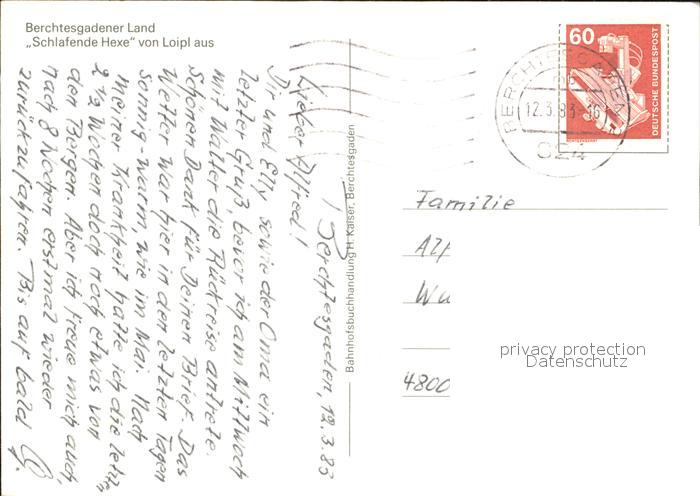 Berchtesgadener Land
„Schlafende Hexe“ von Loipl aus
Berchtesgaden, 12.3.83
Lieber Alfred!
Dir und Elly sowie der Oma ein
letzter Gruß, bevor ich am Mittwoch
mit Walter die Rückreise antrete.
Schönen Dank für Deinen Brief. Das
Wetter war hier in den letzten Tagen
sonnig warm, wie im Mai. Nach
meiner Krankheit hatte ich die letzten
2 1/2 Wochen doch noch etwas von
den Bergen. Aber ich freue mich auch,
nach 8 Wochen erst mal wieder
zurückzufahren. Bis auf bald
Bahnhofsbuchhandlung H. Kaiser, Berchtesgaden
60
DEUTSCHE BUNDESPOST
BERCHTESGADEN
12.3.83-16
Familie
Alf
Wu
4800
privacy protection
Datenschutz